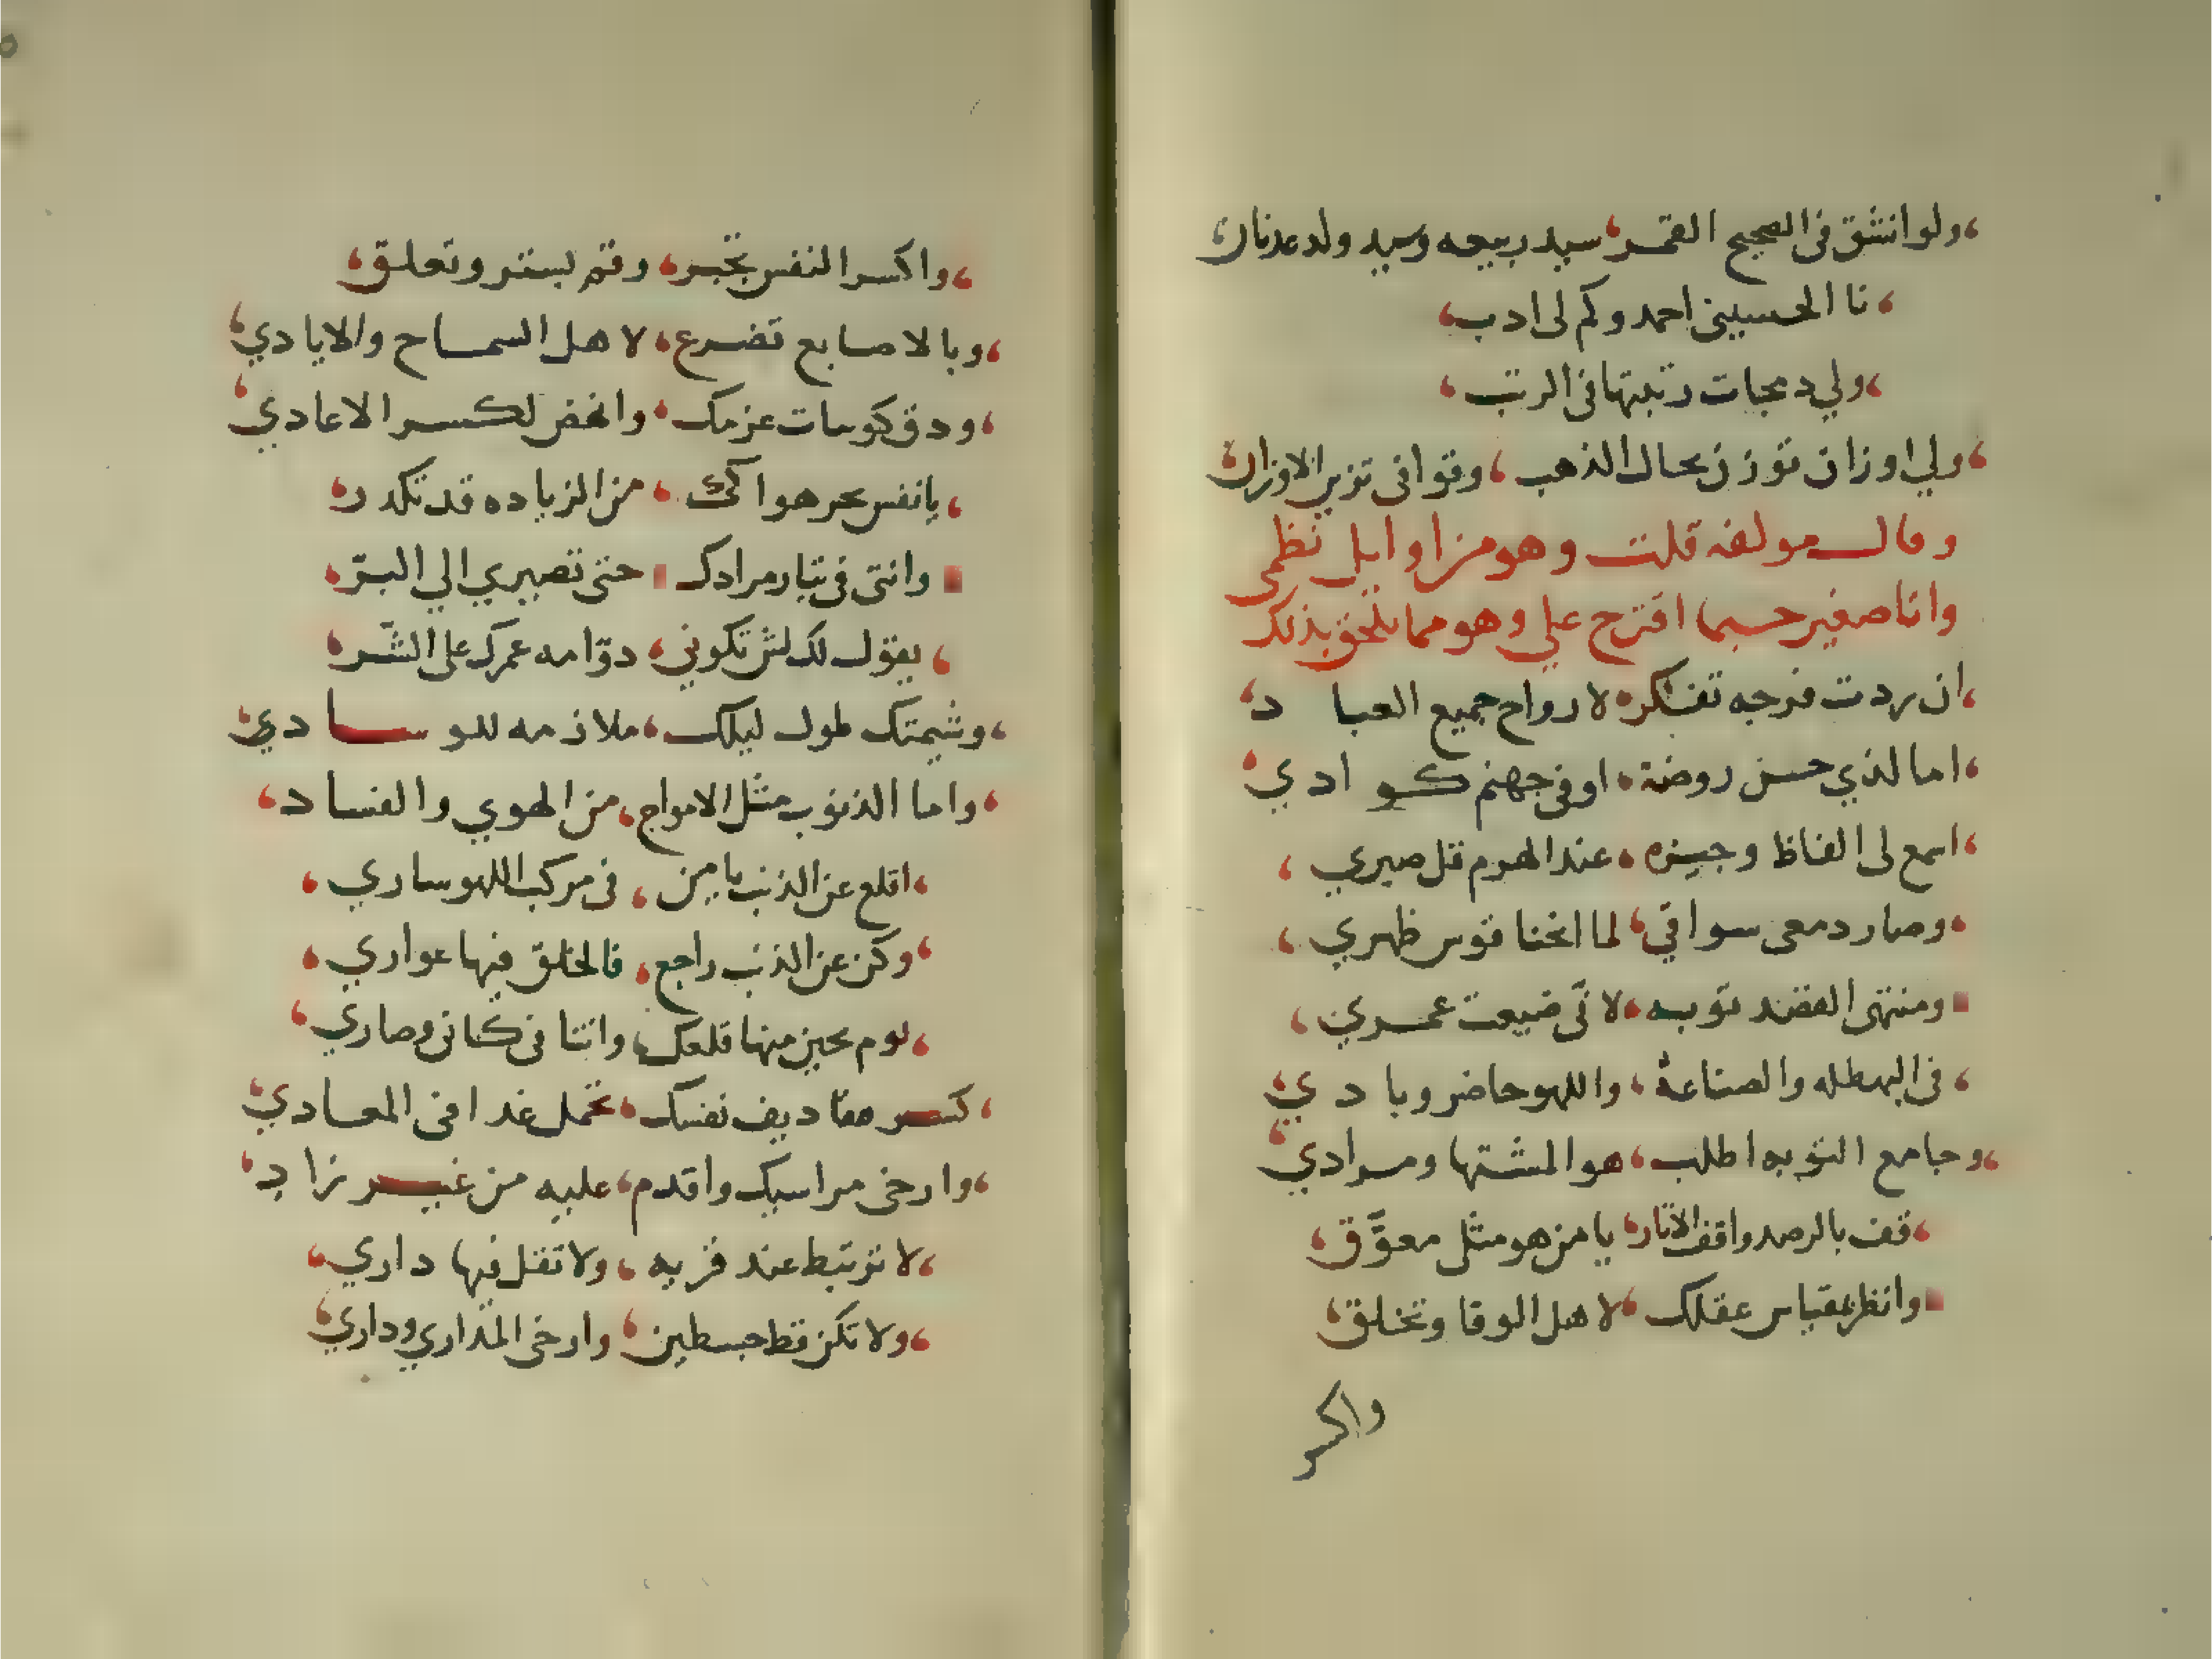 ولو انشق في الصحيح القمر سيد ربيعه وسيد ولد عدنان
نا الحسيني احمد وكم لي ادب
ولي دعجات رتبتها في الرتب
ولي اوزان توزن بحال الذهب وقوافي تزين الاوزان
وقال مولفه قلت وهو من اوايل نظمي
وانا صغير حسبما اقترح علي وهو مما يلحق بذلك
ان ردت فرجه تفتكره لارواح جميع العباد
اما لذي حسن روضة او في جهنم كوادي
اسمع لي الفاظ وجيزه عند الهرم قل صبري
وصار دمعي سواقي لما انحنا قوس ظهري
ومنتهى القصد توبه لاني ضيعت عمري
في البهطله والصناعة واللهو حاضر وبادي
وجامع التوبه اطلب هو المشتها ومرادي
قف بالرصد واقف الاثار يا من هو مثل معوق
وانظر بمقياس عقلك لاهل الوفا وتخلق
واكسر
واكسر النفس تجبر وقم بستر وتعلق
وبالاصابع تضرع لاهل السماح والايادي
ودق كوسات عزمك وانهض لكسر الاعادي
يا نفس بحر هواكي من الزياده قد تكدر
وانتي في تيار مرادك حتى تصيري الي البر
يقول لك لش تكوني دوامه عمرك على الشر
وشيمتك طول ليلك ملازمه للوسادي
واما الذنوب مثل الامواج من الهوي والفساد
اقلع عن الذنب يا من في مركب اللهو ساري
وكن عن الذنب راجع فالخلق فيها عواري
لوم بحين منها قلعك وانتا في كاني وصاري
كسر مقاديف نفسك تحمل غدا في المعادي
وارخى مراسيك واقدم عليه من غير زاد
لا ترتبط عند قريه ولا تقل فيها داري
ولا تكن قط حسطين وارخي المداري وداري